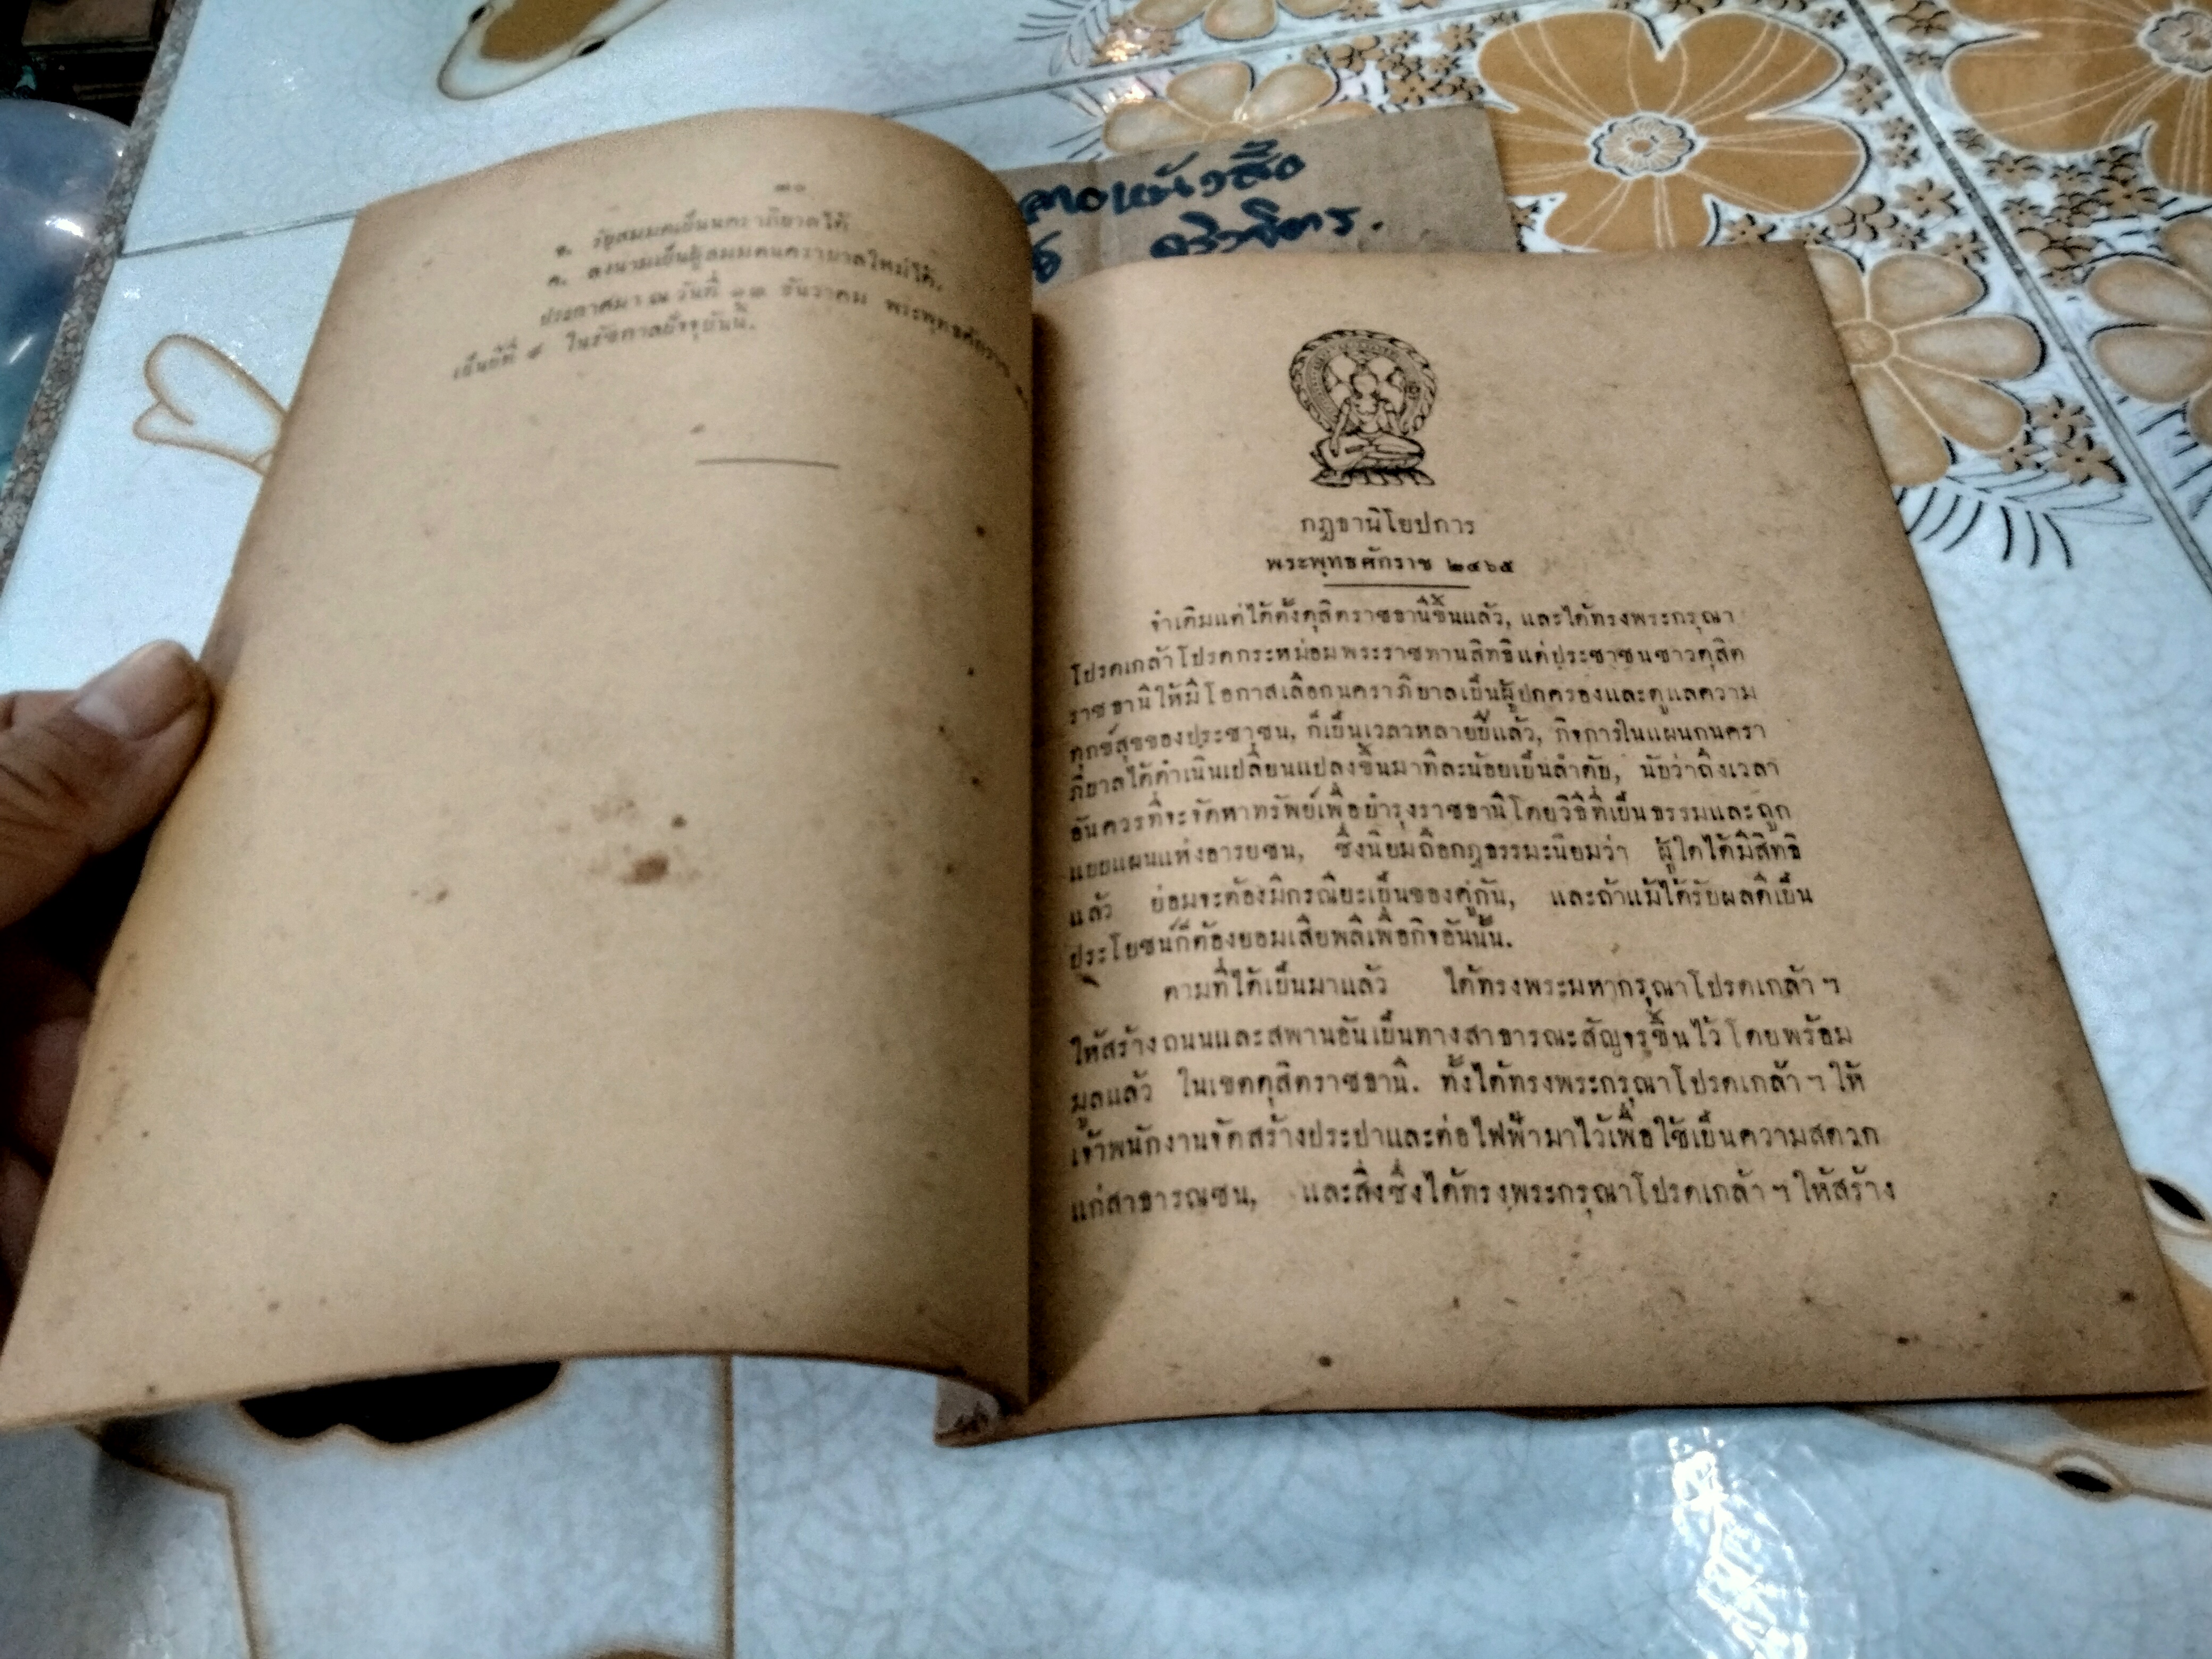 ๓๐
๒. รับสมมตเป็นนคราภิบาลได้
๓. ลงนามเป็นผู้สมมตนคราบาลใหม่ได้.
ประกาศมา ณ วันที่ ธันวาคม พระพุทธศักราช
เป็นปีที่ ๙ ในรัชกาลปัจจุบันนี้.
ลายหนังสือ
กฎธานิโยปการ
พระพุทธศักราช ๒๔๖๕
จำเดิมแต่ได้ตั้งดุสิตราชธานีขึ้นแล้ว, และได้ทรงพระกรุณา
โปรดเกล้าโปรดกระหม่อมพระราชทานสิทธิแด่ประชาชนชาวดุสิต
ราชธานีให้มีโอกาสเลือกนคราภิบาลเป็นผู้ปกครองและดูแลความ
ทุกข์สุขของประชาชน, ก็เป็นเวลาหลายปีแล้ว, กิจการในแผนกนครา
ภิบาลได้ดำเนินเปลี่ยนแปลงขึ้นมาทีละน้อยเป็นลำดับ, นับว่าถึงเวลา
อันควรที่จะจัดหาทรัพย์เพื่อบำรุงราชธานีโดยวิธีที่เป็นธรรมและถูก
แบบแผนแห่งอารยชน, ซึ่งนิยมถือกฎธรรมะนิยมว่า ผู้ใดได้มีสิทธิ
แล้ว ย่อมจะต้องมีกรณียะเป็นของคู่กัน, และถ้าแม้ได้รับผลดีเป็น
ประโยชน์ก็ต้องยอมเสียพลีเพื่อกิจอันนั้น.
ตามที่ได้เป็นมาแล้ว ได้ทรงพระมหากรุณาโปรดเกล้าฯ
ให้สร้างถนนและสพานอันเป็นทางสาธารณะสัญจรขึ้นไว้โดยพร้อม
มูลแล้ว ในเขตดุสิตราชธานี. ทั้งได้ทรงพระกรุณาโปรดเกล้าฯ ให้
เจ้าพนักงานจัดสร้างประปาและต่อไฟฟ้ามาไว้เพื่อใช้เป็นความสดวก
แก่สาธารณชน, และสิ่งซึ่งได้ทรงพระกรุณาโปรดเกล้าฯ ให้สร้าง